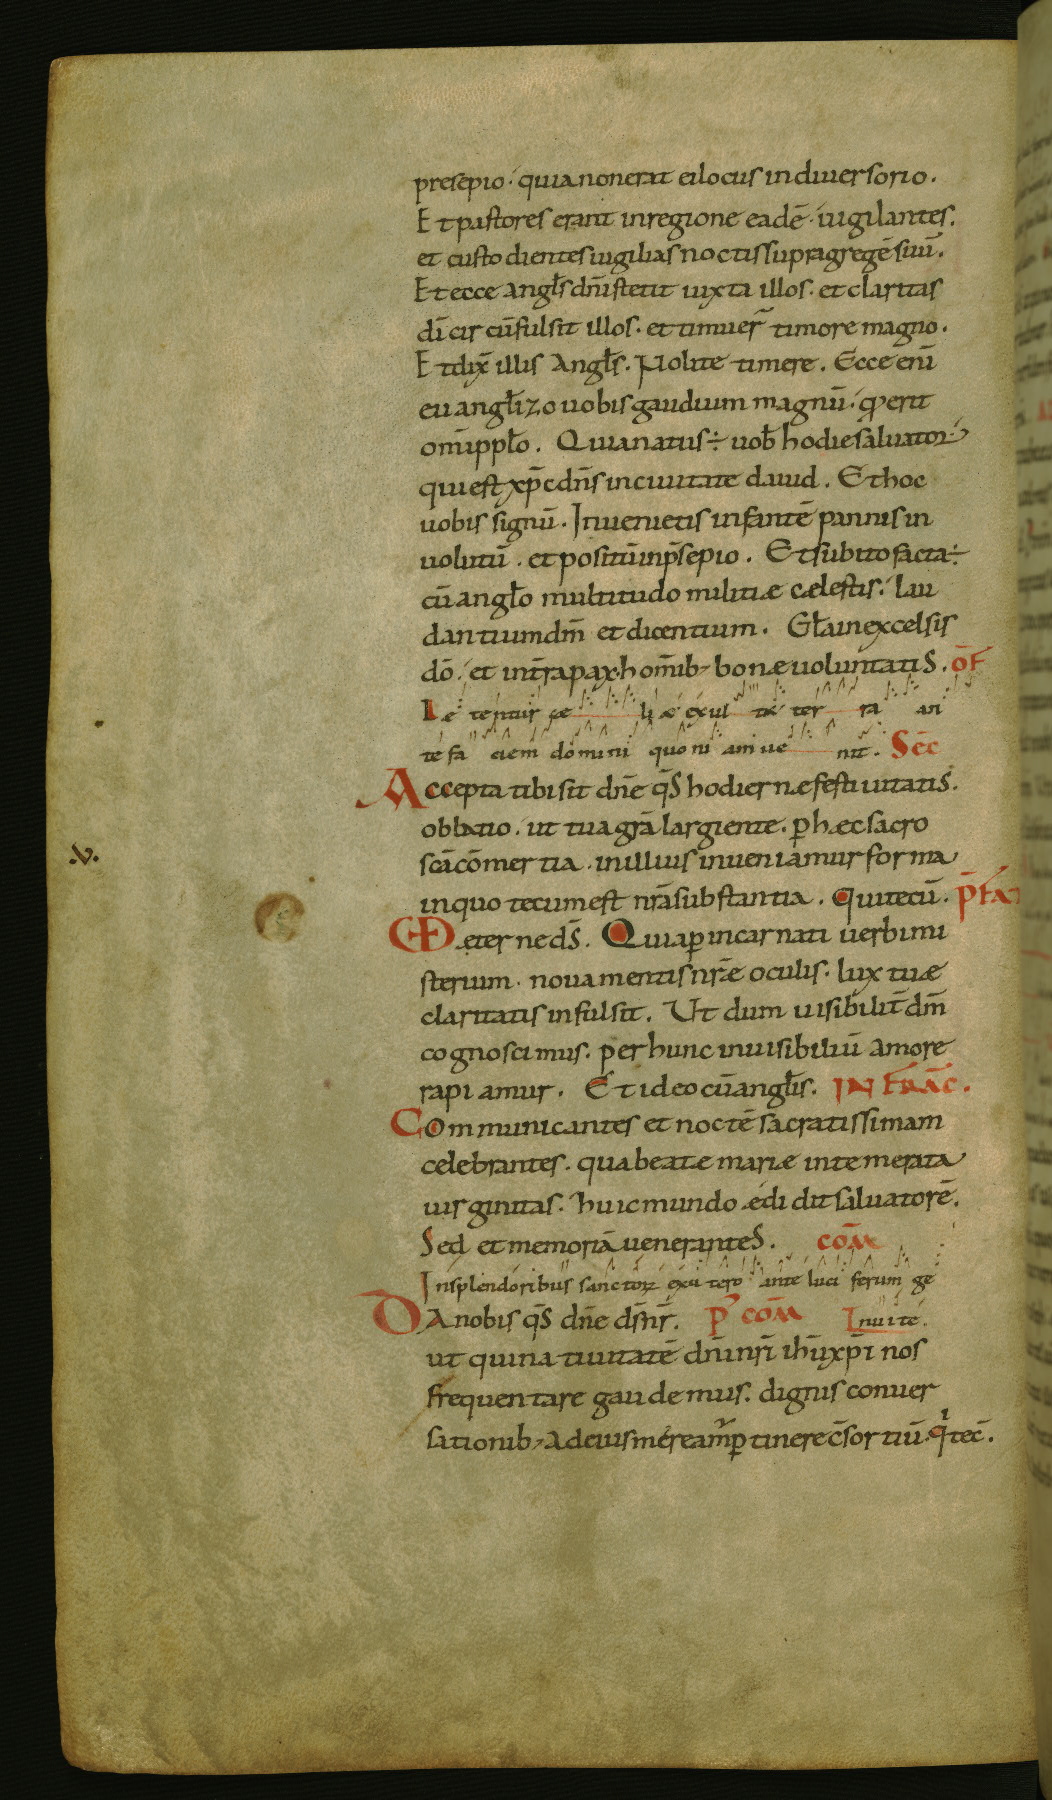 presepio · quia non erat ei locus in diuersorio .
Et pastores erant in regione eadē · iugilantes .
et custodientes iugilias noctis supra gregē suū .
Et ecce angl̄s dn̄i stetit iuxta illos . et claritas
dī circūfulsit illos . et timuer̄ timore magno .
Et dix̄ illis angl̄s . Nolite timere . Ecce enī
euangl̄izo uobis gaudium magnū . q̄ erit
om̄i ppl̄o . Quia natus ÷ uob̄ hodie saluator
qui est xp̄c dn̄s in ciuitate dauid . Et hoc
uobis signū . Inuenietis infantē pannis in
uolutū . et positū in p̄sepio . Et subito facta ÷
cū angl̄o multitudo militiæ cælestis . lau
dantium dm̄ et dicentium . Gl̄a in excelsis
dō . et in tr̄a pax hom̄ib; bonæ uoluntatis . of̄
Læ tentur cæ li æ exul tæ ter ra an
te fa ciem domini quo ni am ue nit . Sec̄
Accepta tibi sit dn̄e q̄s hodiernæ festiuitatis .
oblatio . ut tua grā largiente . p̄ hæc sacro
scā cōmertia . in illius inueniamur forma
in quo tecum est nrā substantia . Qui tecū . p̄fa
VD æterne ds̄ . Quia p̄ incarnati uerbi mi
sterium . noua mentis nrē oculis . lux tuæ
claritatis infulsit . Ut dum uisibilit̄ dm̄
cognoscimus . per hunc inuisibiliū amore
rapiamur . Et ideo cū angl̄is . INFRAC̄ .
Communicantes et noctē sacratissimam
celebrantes . qua beatæ mariæ intemerata
uirginitas . huic mundo ædidit saluatorē .
Sed et memoriā uenerantes . com̄
In splendoribus sanctoꝝ ex utero ante luciferum ge
Da nobis q̄s dn̄e ds̄ nr̄ . p̄ com̄ nui te .
ut qui natiuitatē dn̄i nrī ihū xp̄i nos
frequentare gaudemus . dignis conuer
sationib; ad eius mereamur̄ p̄tinere c̄sortiū . q̄ tec̄ .
.v.